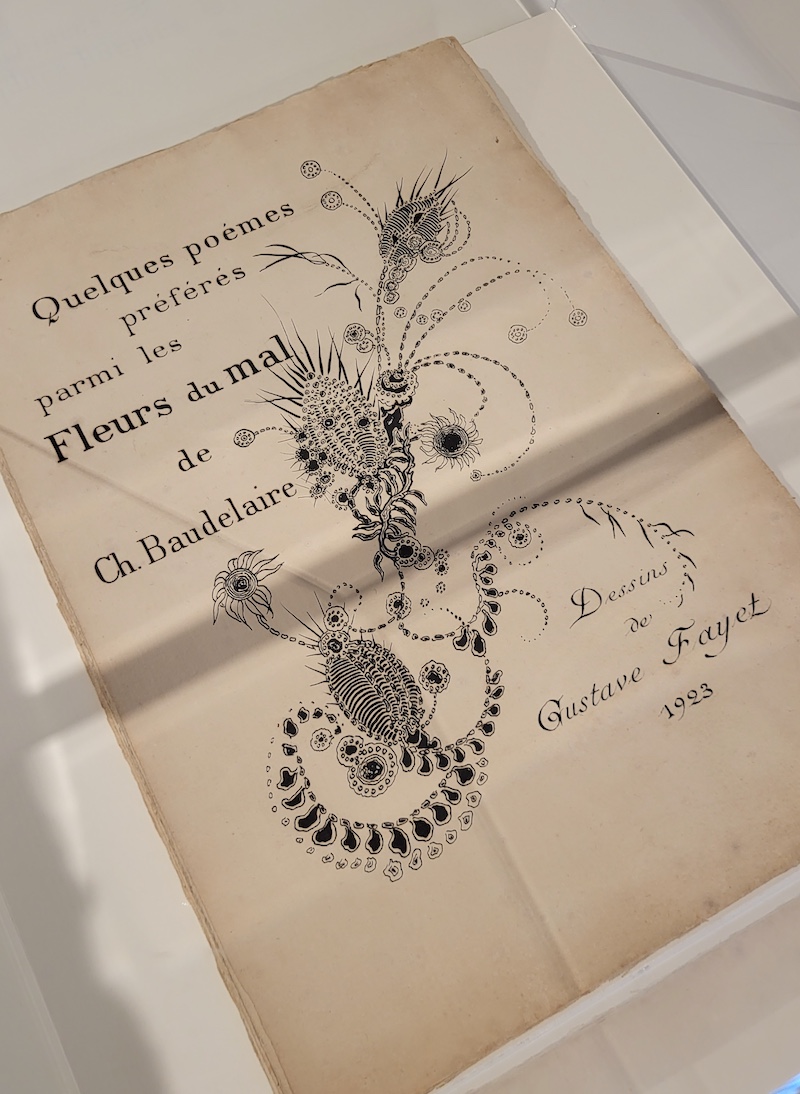 Quelques poémes
préférés
parmi les
Fleurs du mal
de
Ch. Baudelaire
Dessins
de
Gustave Fayet
1923